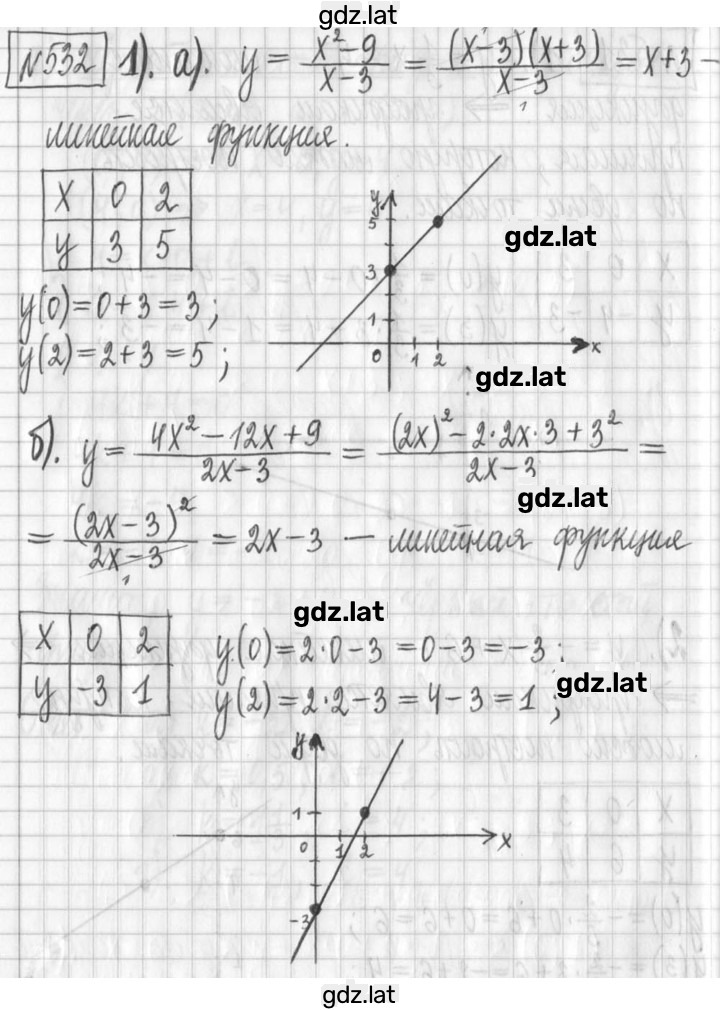 gdz.lat
№532 1). а). y = (x² − 9)/(x − 3) = ((x−3)(x+3))/(x−3) = x+3 −
1
линейная функция.
x 0 2
y 3 5
y 5 3 1 0 1 2 x
gdz.lat
y(0) = 0+3 = 3;
y(2) = 2+3 = 5;
gdz.lat
б). y = (4x² − 12x + 9)/(2x − 3) = ((2x)² − 2·2x·3 + 3²)/(2x − 3) =
gdz.lat
= (2x − 3)²/(2x − 3) = 2x − 3 — линейная функция
1
gdz.lat
x 0 2
y −3 1
y(0) = 2·0 − 3 = 0 − 3 = −3;
gdz.lat
y(2) = 2·2 − 3 = 4 − 3 = 1;
y 1 0 1 2 x −3
gdz.lat